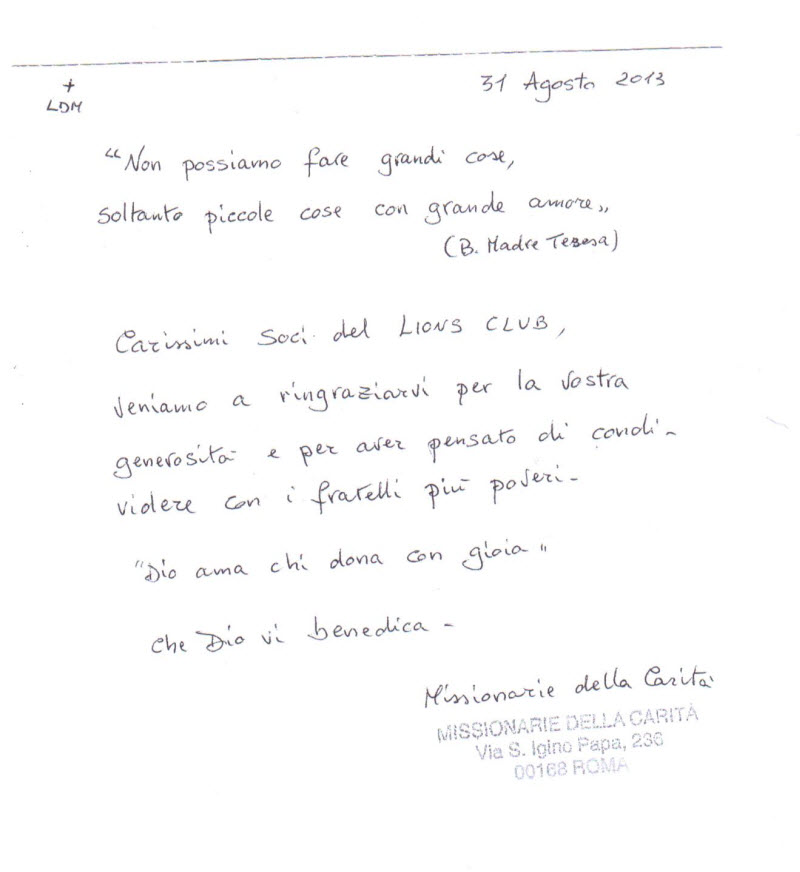 +
LDM
31 Agosto 2013
“Non possiamo fare grandi cose,
soltanto piccole cose con grande amore„
(B. Madre Teresa)
Carissimi Soci del LIONS CLUB,
veniamo a ringraziarvi per la vostra
generosità e per aver pensato di condi-
videre con i fratelli più poveri-
"Dio ama chi dona con gioia"
che Dio vi benedica-
Missionarie della Carità
MISSIONARIE DELLA CARITÀ
Via S. Igino Papa, 236
00168 ROMA